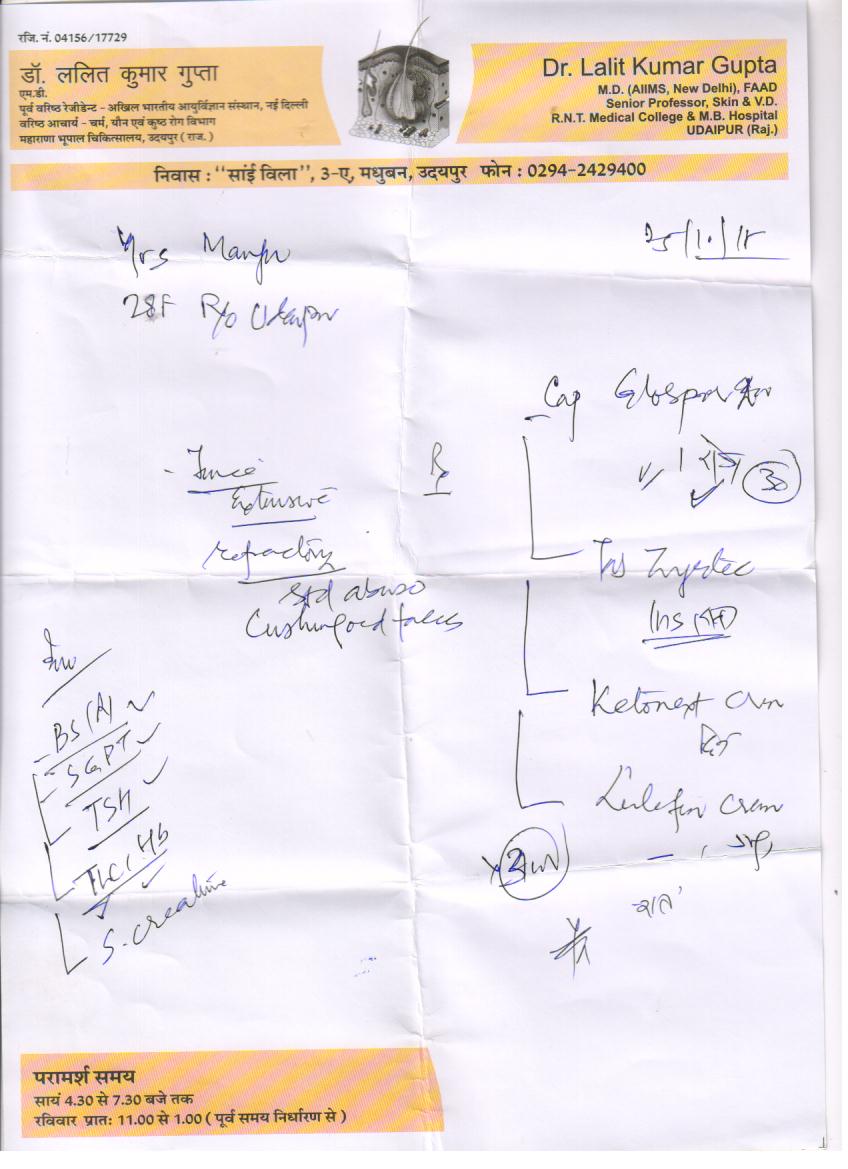 रजि. नं. 04156/17729
डॉ. ललित कुमार गुप्ता
एम.डी.
पूर्व वरिष्ठ रेजीडेन्ट - अखिल भारतीय आयुर्विज्ञान संस्थान, नई दिल्ली
वरिष्ठ आचार्य - चर्म, यौन एवं कुष्ठ रोग विभाग
महाराणा भूपाल चिकित्सालय, उदयपुर ( राज. )
Dr. Lalit Kumar Gupta
M.D. (AIIMS, New Delhi), FAAD
Senior Professor, Skin & V.D.
R.N.T. Medical College & M.B. Hospital
UDAIPUR (Raj.)
निवास : "सांई विला", 3-ए, मधुबन, उदयपुर फोन : 0294-2429400
Mrs Manju
28F R/o Udaipur
Cap
1 रोज 30
- Tinea
Extensive
refractory
Std abuse
Cushingoid facies
Rx
Zyrtec
Ketonext
Cream
- BS (A)
- SGPT
TSH
TLC, Hb
S. Creatinine
रात
परामर्श समय
सायं 4.30 से 7.30 बजे तक
रविवार प्रातः 11.00 से 1.00 ( पूर्व समय निर्धारण से )